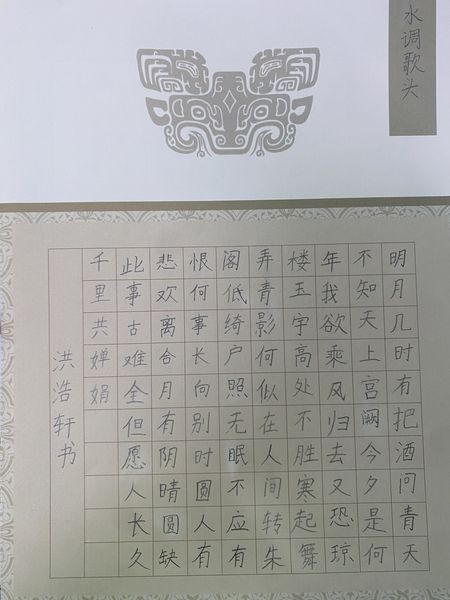 水调歌头
明月几时有把酒问青天
不知天上宫阙今夕是何
年我欲乘风归去又恐琼
楼玉宇高处不胜寒起舞
弄青影何似在人间转朱
阁低绮户照无眠不应有
恨何事长向别时圆人有
悲欢离合月有阴晴圆缺
此事古难全但愿人长久
千里共婵娟
洪浩轩书